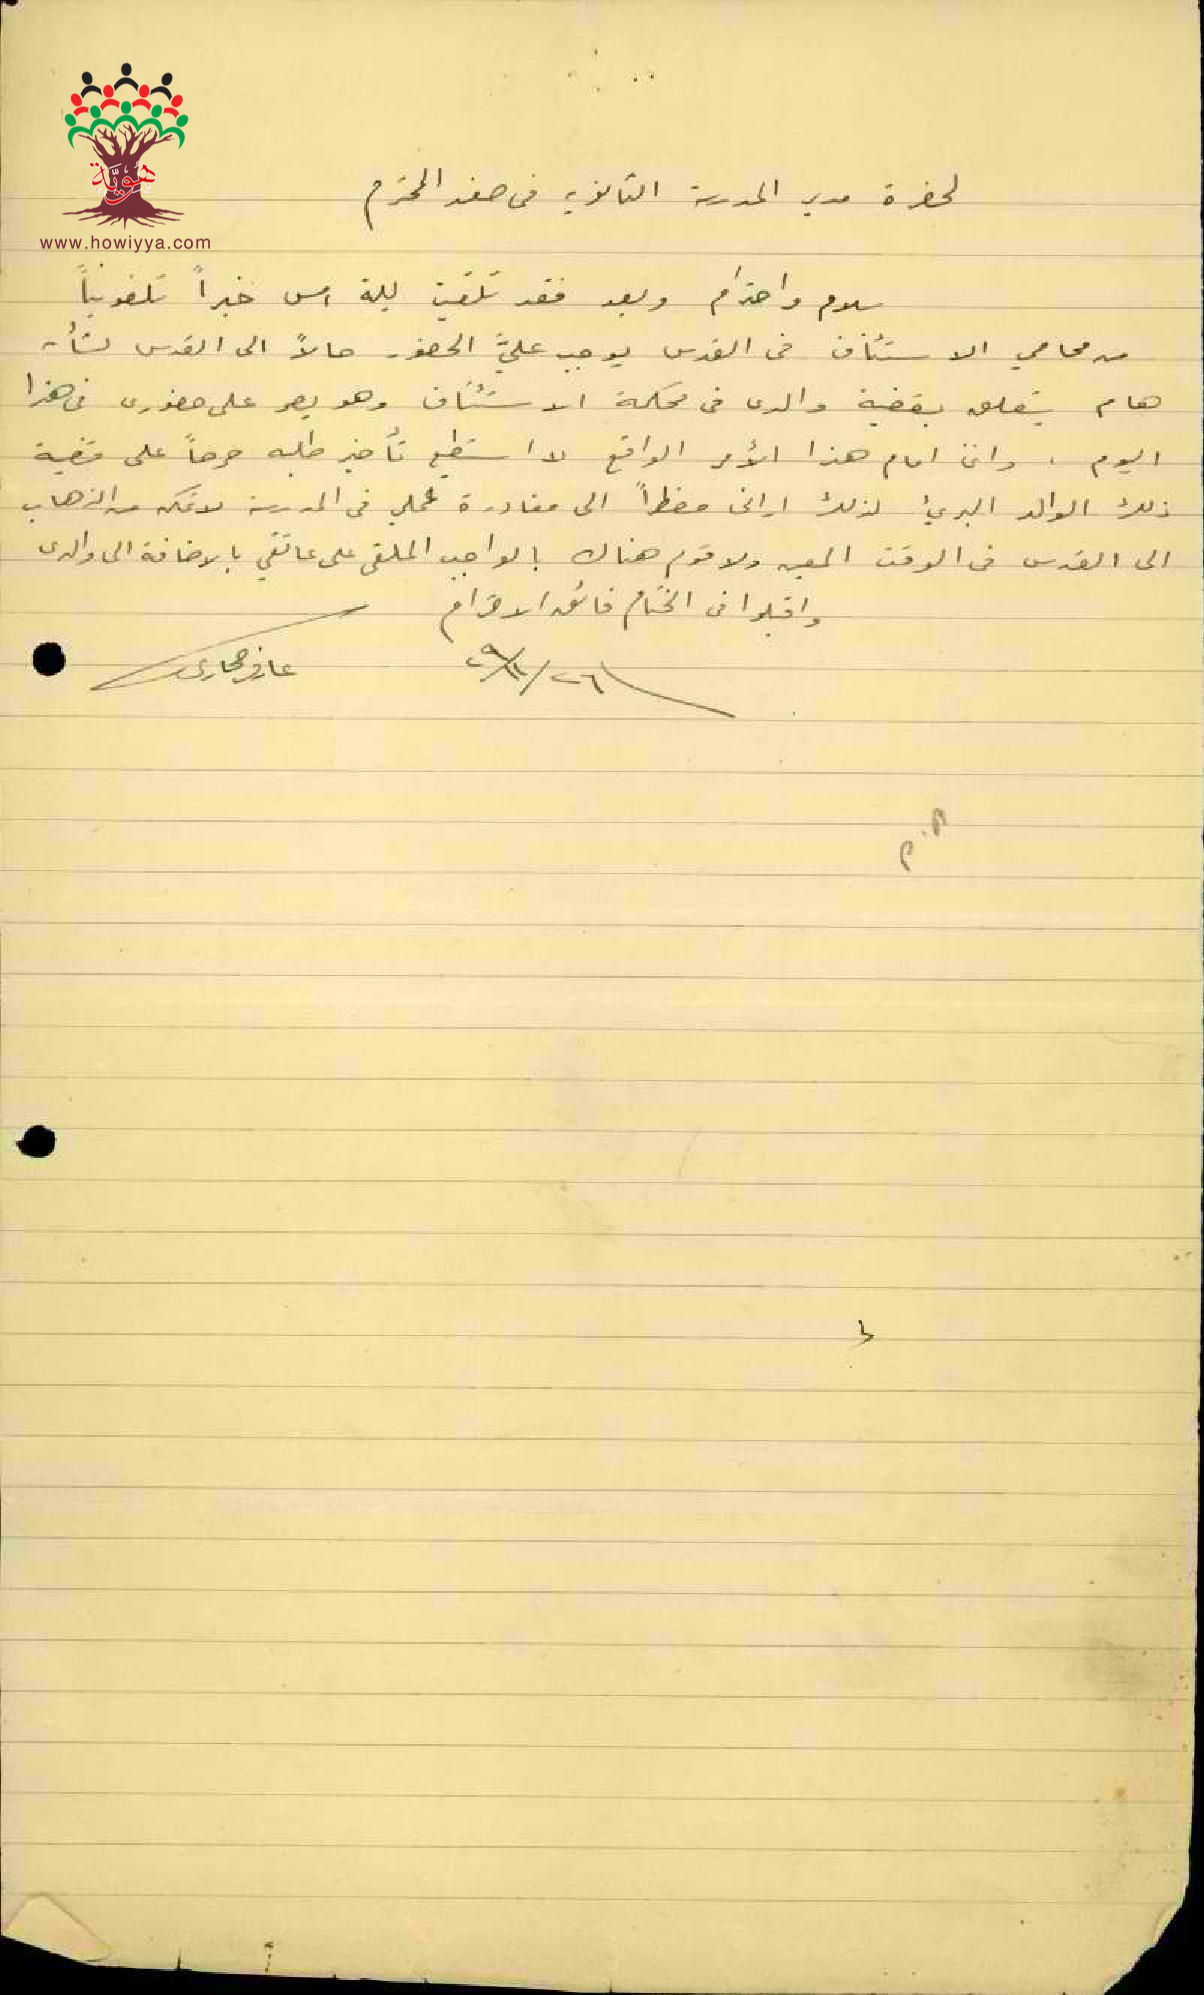 هوية
www.howiyya.com
لحضرة مدير المدرسة الثانوية في صفد المحترم
سلام واحترام وبعد فقد تلقيت ليلة امس خبراً تلفونياً
من محامي الاستئناف في القدس يوجب عليَّ الحضور حالاً الى القدس لشأن
هام يتعلق بقضية والدى في محكمة الاستئناف وهو يصر على حضورى في هذا
اليوم . واني امام هذا الأمر الواقع لا استطيع تأخير طلبه حرصاً على قضية
ذلك الوالد البريء لذلك اراني مضطراً الى مغادرة عملي في المدرسة لاتمكن من الذهاب
الى القدس في الوقت المعين ولاقوم هناك بالواجب الملقى على عاتقي بالاضافة الى والدى
واقبلوا في الختام فائق الاحترام
عارف حجازى